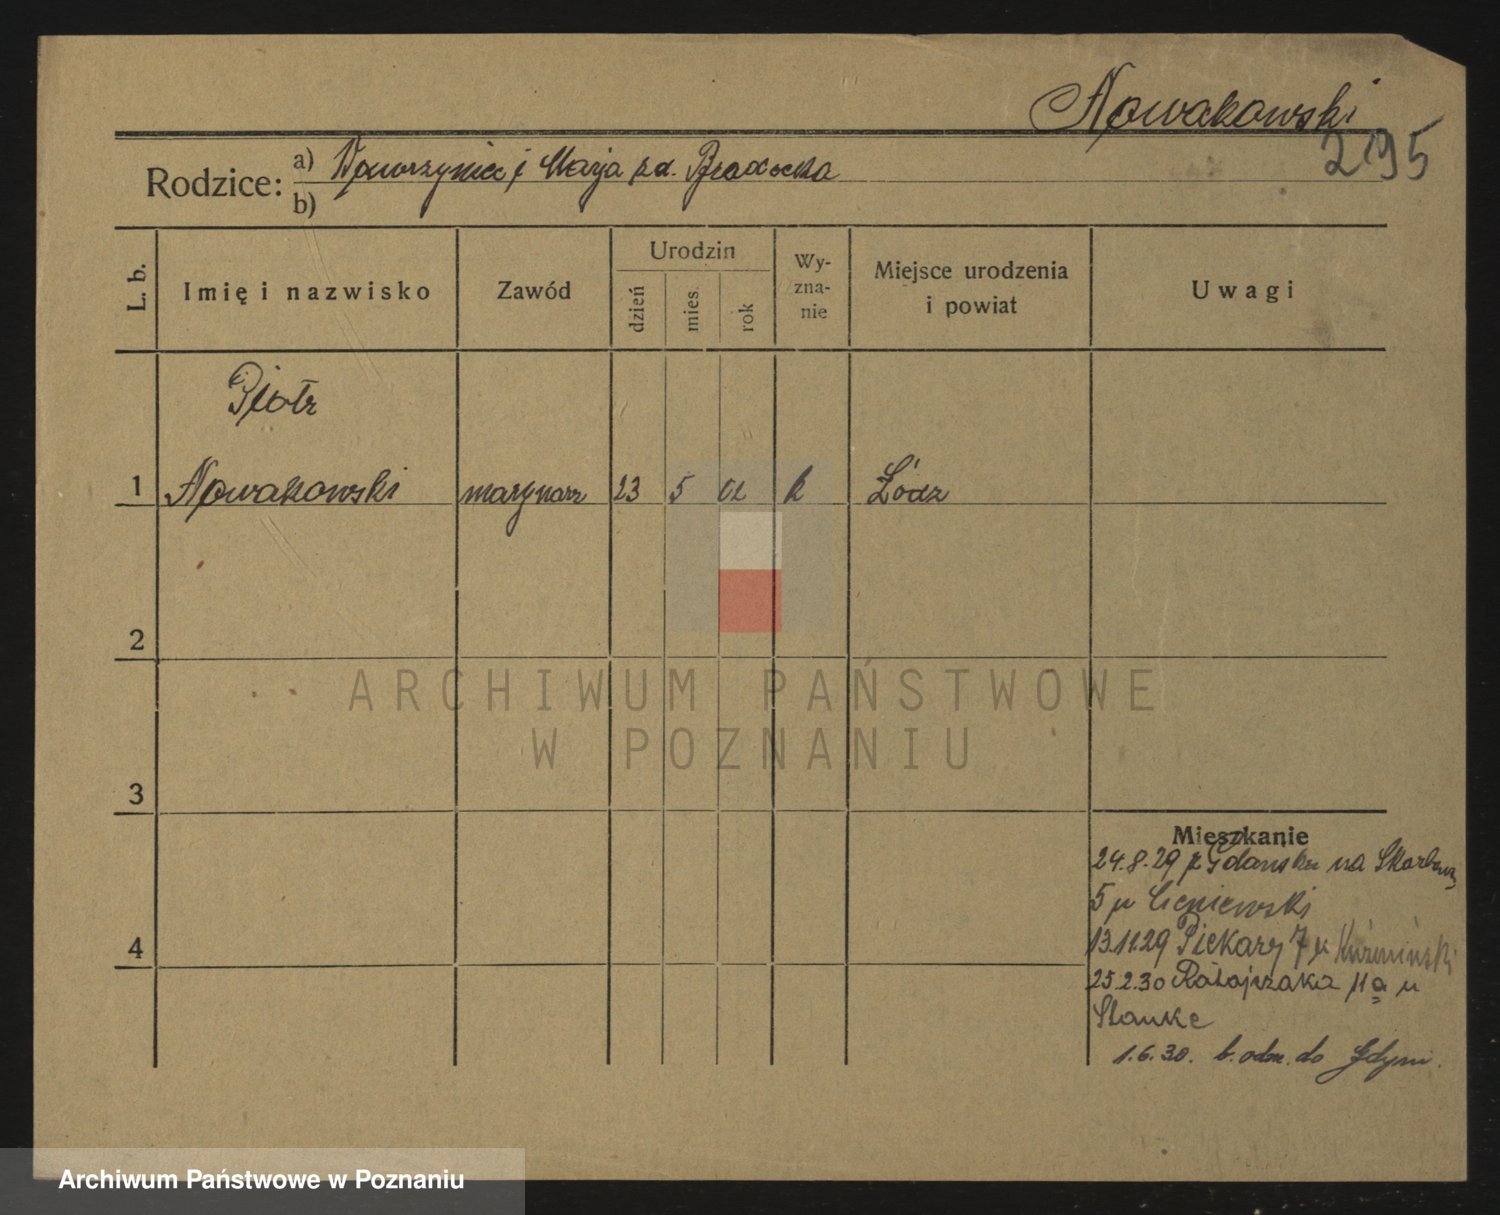 Nowakowski
295
Rodzice: a) Wawrzyniec i Marja zd.
b)
L. b.
Imię i nazwisko
Zawód
Urodzin
dzień
mies.
rok
Wy-
zna-
nie
Miejsce urodzenia
i powiat
Uwagi
Piotr
1 Nowakowski marynarz 23 5 02 k Łódź
2
3
4
Mieszkanie
24.8.29 z Gdańska na Skarbową
5 u
13.11.29 Piekary 7 u
25.2.30 Ratajczaka 11a u
Stanke
1.6.30. b. odm. do Gdyni.
ARCHIWUM PAŃSTWOWE
W POZNANIU
Archiwum Państwowe w Poznaniu